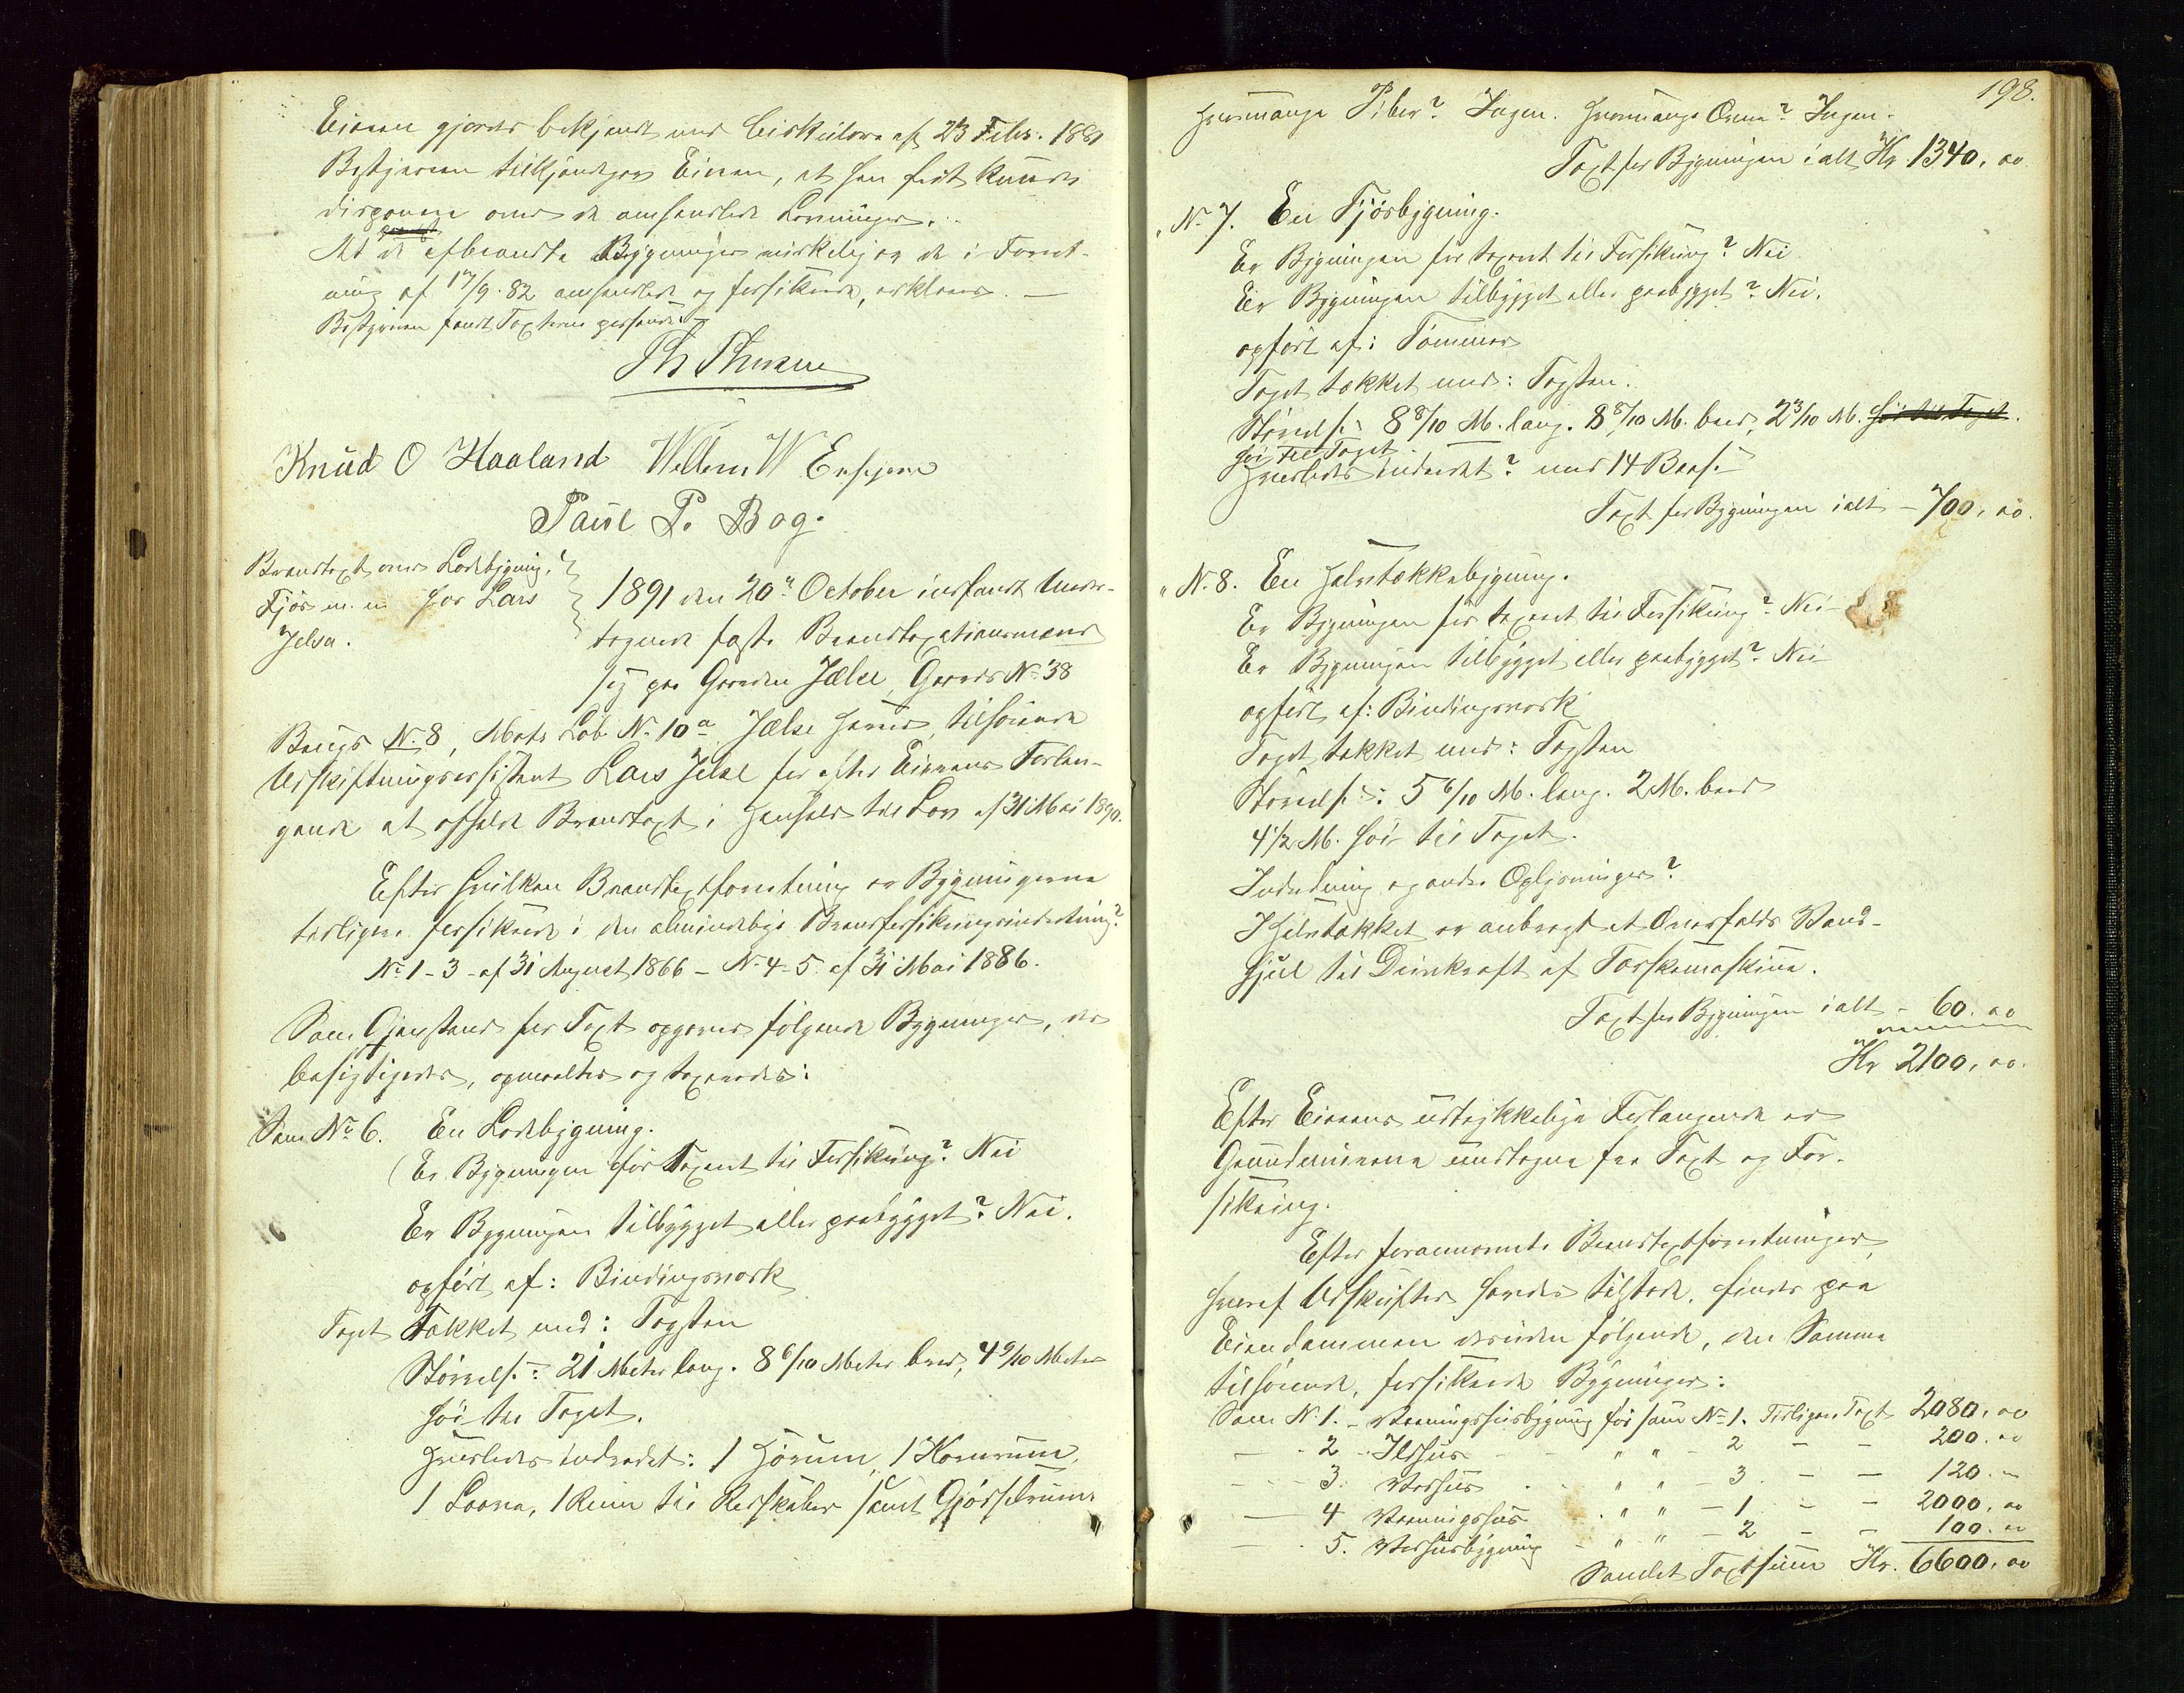 Eieren gjordes bekjendt med Cirkulære af 23 Febr. 1881
Bestyreren tilkjendegav Eieren, at han frit kunde
disponere over de omhandlede Levninger.
At de afbrændte Bygninger virkelig er de i Forret-
ning af 17/9. 82 omhandlede og forsikrede, erklæres. —
Bestyreren fandt Taxterne passende
Knud O Haaland Willem W
Paul P. Bog.
Brandtaxt over Ladebygning,
Fjøs m. m. hos Lars
Jelsa.
1891 den 20de October indfandt Under-
tegnede faste Brandtaxationsmænd
sig paa Gaarden Jælse, Gaards No 38
Brugs No. 8, Matr. Løb No. 10a Jælse Herred, tilhørende
Udskiftningsassistent Lars Jelse for efter Eierens Forlan-
gende at afholde Brandtaxt i Henhold til Lov af 31 Mai 1890.
Efter hvilken Brandtaxtforretning er Bygningerne
tidligere forsikrede i den almindelige Brandforsikringsindretning?
No 1-3 - af 31 August 1866 - No. 4-5 af 31 Mai 1886.
Som Gjenstand for Taxt opgaves følgende Bygninger, der
besigtigedes, opmaaltes og taxeredes:
Som No 6. En Ladebygning.
Er Bygningen før taxeret til Forsikring? Nei
Er Bygningen tilbygget eller paabygget? Nei.
opført af: Bindingsværk
Taget Tækket med: Tagsten
Størrelse: 21 Meter lang. 8 6/10 Meter bred, 4 9/10 Meter
høi til Taget.
Hvorledes indredet: 1 Hørum, 1 Kornrum,
1 Laave, 1 Rum til Redskaber samt Gjødselrum.
198.
Hvormange Piber? Ingen. Hvormange Ovne? Ingen.
Taxt for Bygningen i alt Kr. 1340, 00
" No. 7. En Fjøsbygning.
Er Bygningen før taxeret til Forsikring? Nei
Er Bygningen tilbygget eller paabygget? Nei.
opført af: Tømmer
Taget tækket med: Tagsten.
Størrelse: 8 8/10 M. lang. 8 8/10 M. bred, 2 3/10 M. høi til Taget.
høi til Taget.
Hvorledes indredet? med 14 Baase
Taxt for Bygningen ialt - 700, 00.
" No. 8. En Halvtækkebygning.
Er Bygningen før taxeret til Forsikring? Nei
Er Bygningen tilbygget eller paabygget? Nei
opført af: Bindingsværk
Taget tækket med: Tagsten
Størrelse: 5 6/10 M. lang. 2 M. bred
4 1/2 M. høi til Taget.
Indredning og andre Oplysninger?
I Halvtækket er anbragt et Overfalds Vand-
hjul til Drivkraft af Tærskemaskine.
Taxt for Bygningen ialt - 60. 00
Kr 2100, 00.
Efter Eierens udtrykkelige Forlangende er
Grundmurene undtagne fra Taxt og For-
sikring.
Efter forannævnte Brandtaxtforretninger,
hvoraf Udskrifter havdes tilstede, findes paa
Eiendommen desuden følgende, den Samme
tilhørende, forsikrede Bygninger:
Som No. 1. - Vaaningshusbygning før som No 1. Tidligere Taxt 2080, 00
— - 2 - Ildhus - " " - 2 - — 200. 00
— - 3. Vedhus . " " - 3. - — 120. -
— 4 Vaaningshus . " " - 1 - — 2000, 00
— - 5. Vedhusbygning - " " - 2 - — 100. 00
Samlet Taxtsum Kr. 6600. 00